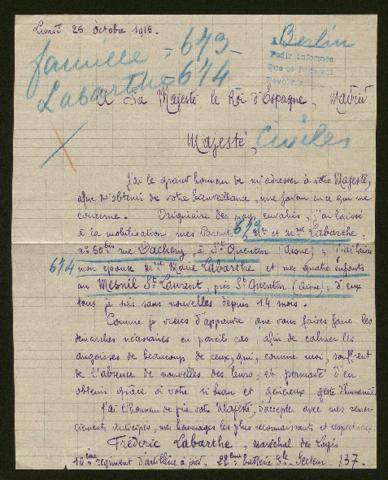 Lundi 25 Octobre 1915.
Berlin
famille = 673-
Labarthe = 674
Pedir informes
A Sa Majesté le Roi d'Espagne, Madrid
Majesté,
Civiles
J'ai le grand honneur de m'adresser à votre Majesté,
afin d'obtenir de votre bienveillance, une faveur en ce qui me
concerne. Originaire des pays envahis, j'ai laissé
à la mobilisation mes Parents 673 Mr et Mme Labarthe,
rue à St Quentin (Aisne); j'ai laissé
674 mon épouse Mme Marie Labarthe et mes quatre enfants
au Mesnil St Laurent, près St Quentin (Aisne); d'eux
tous je suis sans nouvelles depuis 14 mois.
Comme je viens d'apprendre que vous faites faire les
démarches nécessaires en pareil cas afin de calmer les
angoisses de beaucoup de ceux, qui, comme moi, souffrent
de l'absence de nouvelles des leurs; et permettez d'en
obtenir grâce à votre si bon et généreux geste d'humanité.
J'ai l'honneur de prier votre Majesté, d'accepter avec mes remer-
ciements anticipés, mes hommages les plus reconnaissants et respectueux.
Fréderic Labarthe, maréchal des Logis
régiment d'artillerie à pied. 22ème batterie Secteur 137.